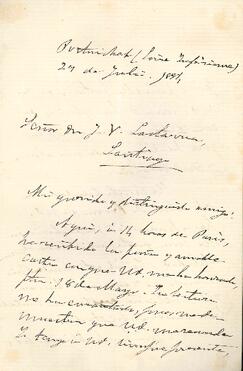 Pornichet (Loire Inférieure)
24 de Julio. 1884
Señor Don J. V. Lastarria,
Santiago
Mi querido y distinguido amigo:
Aquí, a 14 horas de Paris,
he recibido la fina y amable
carta con que Ud. me ha honrado,
fha. 18 de Mayo. Su lectura
me ha
muestra que Ud. me recuerda
Yo tengo a Ud. siempre presente,